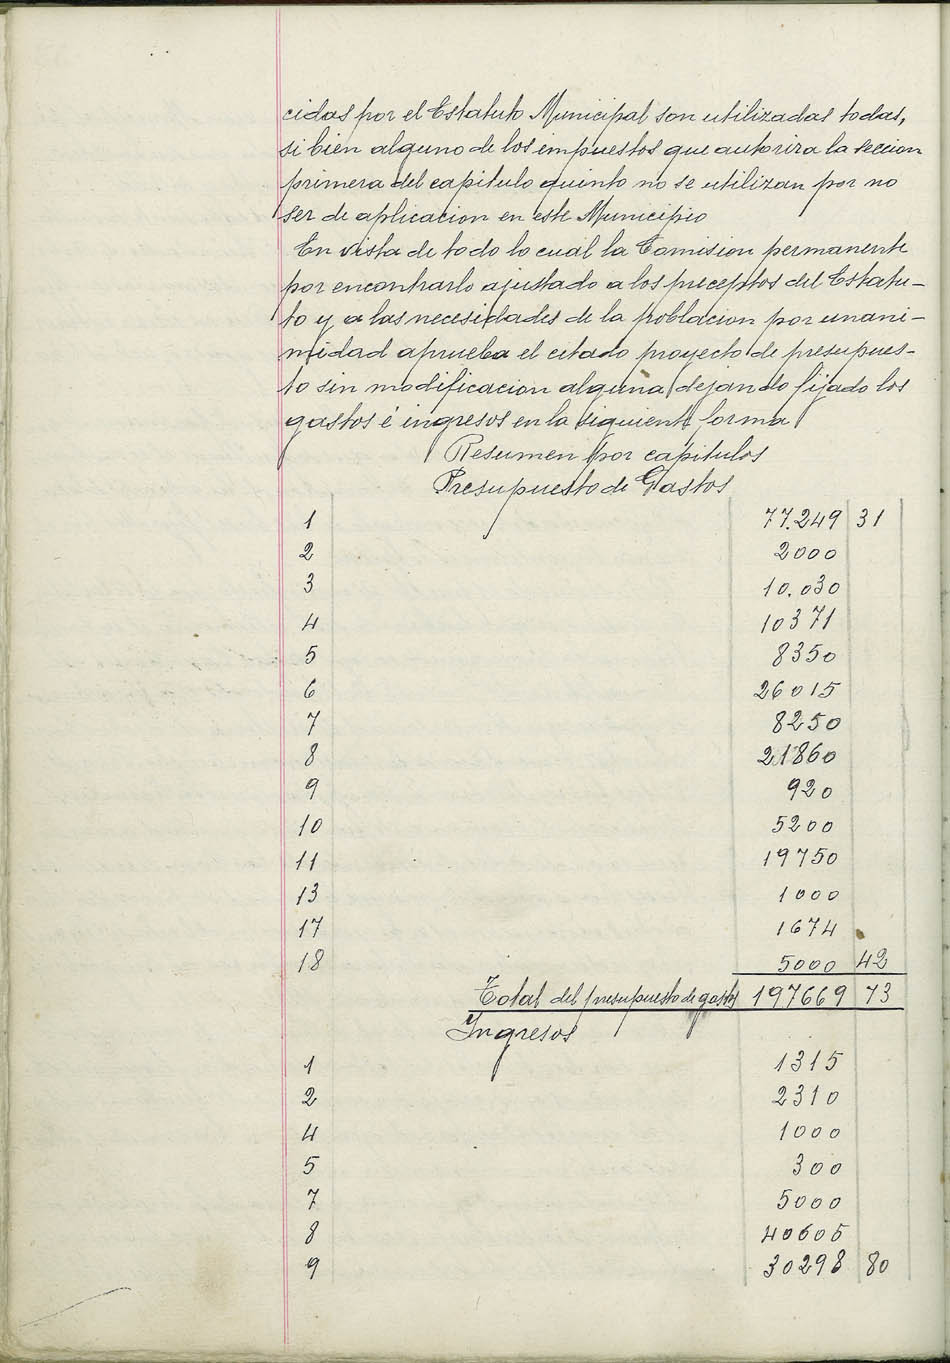 cidas por el Estatuto Municipal son utilizadas todas,
si bien alguno de los impuestos que autoriza la seccion
primera del capitulo quinto no se utilizan por no
ser de aplicacion en este Municipio
En vista de todo lo cual la Comision permanente
por encontrarlo ajustado a los preceptos del Estatu-
to y a las necesidades de la poblacion por unani-
midad aprueba el citado proyecto de presupues-
to sin modificacion alguna dejando fijado los
gastos é ingresos en la siguiente forma
Resumen por capitulos
Presupuesto de Gastos
1 77.249 31
2 2000
3 10.030
4 10371
5 8350
6 26015
7 8250
8 21860
9 920
10 5200
11 19750
13 1000
17 1674
18 5000 42
Total del presupuesto de gastos 197669 73
Ingresos
1 1315
2 2310
4 1000
5 300
7 5000
8 40605
9 30298 80